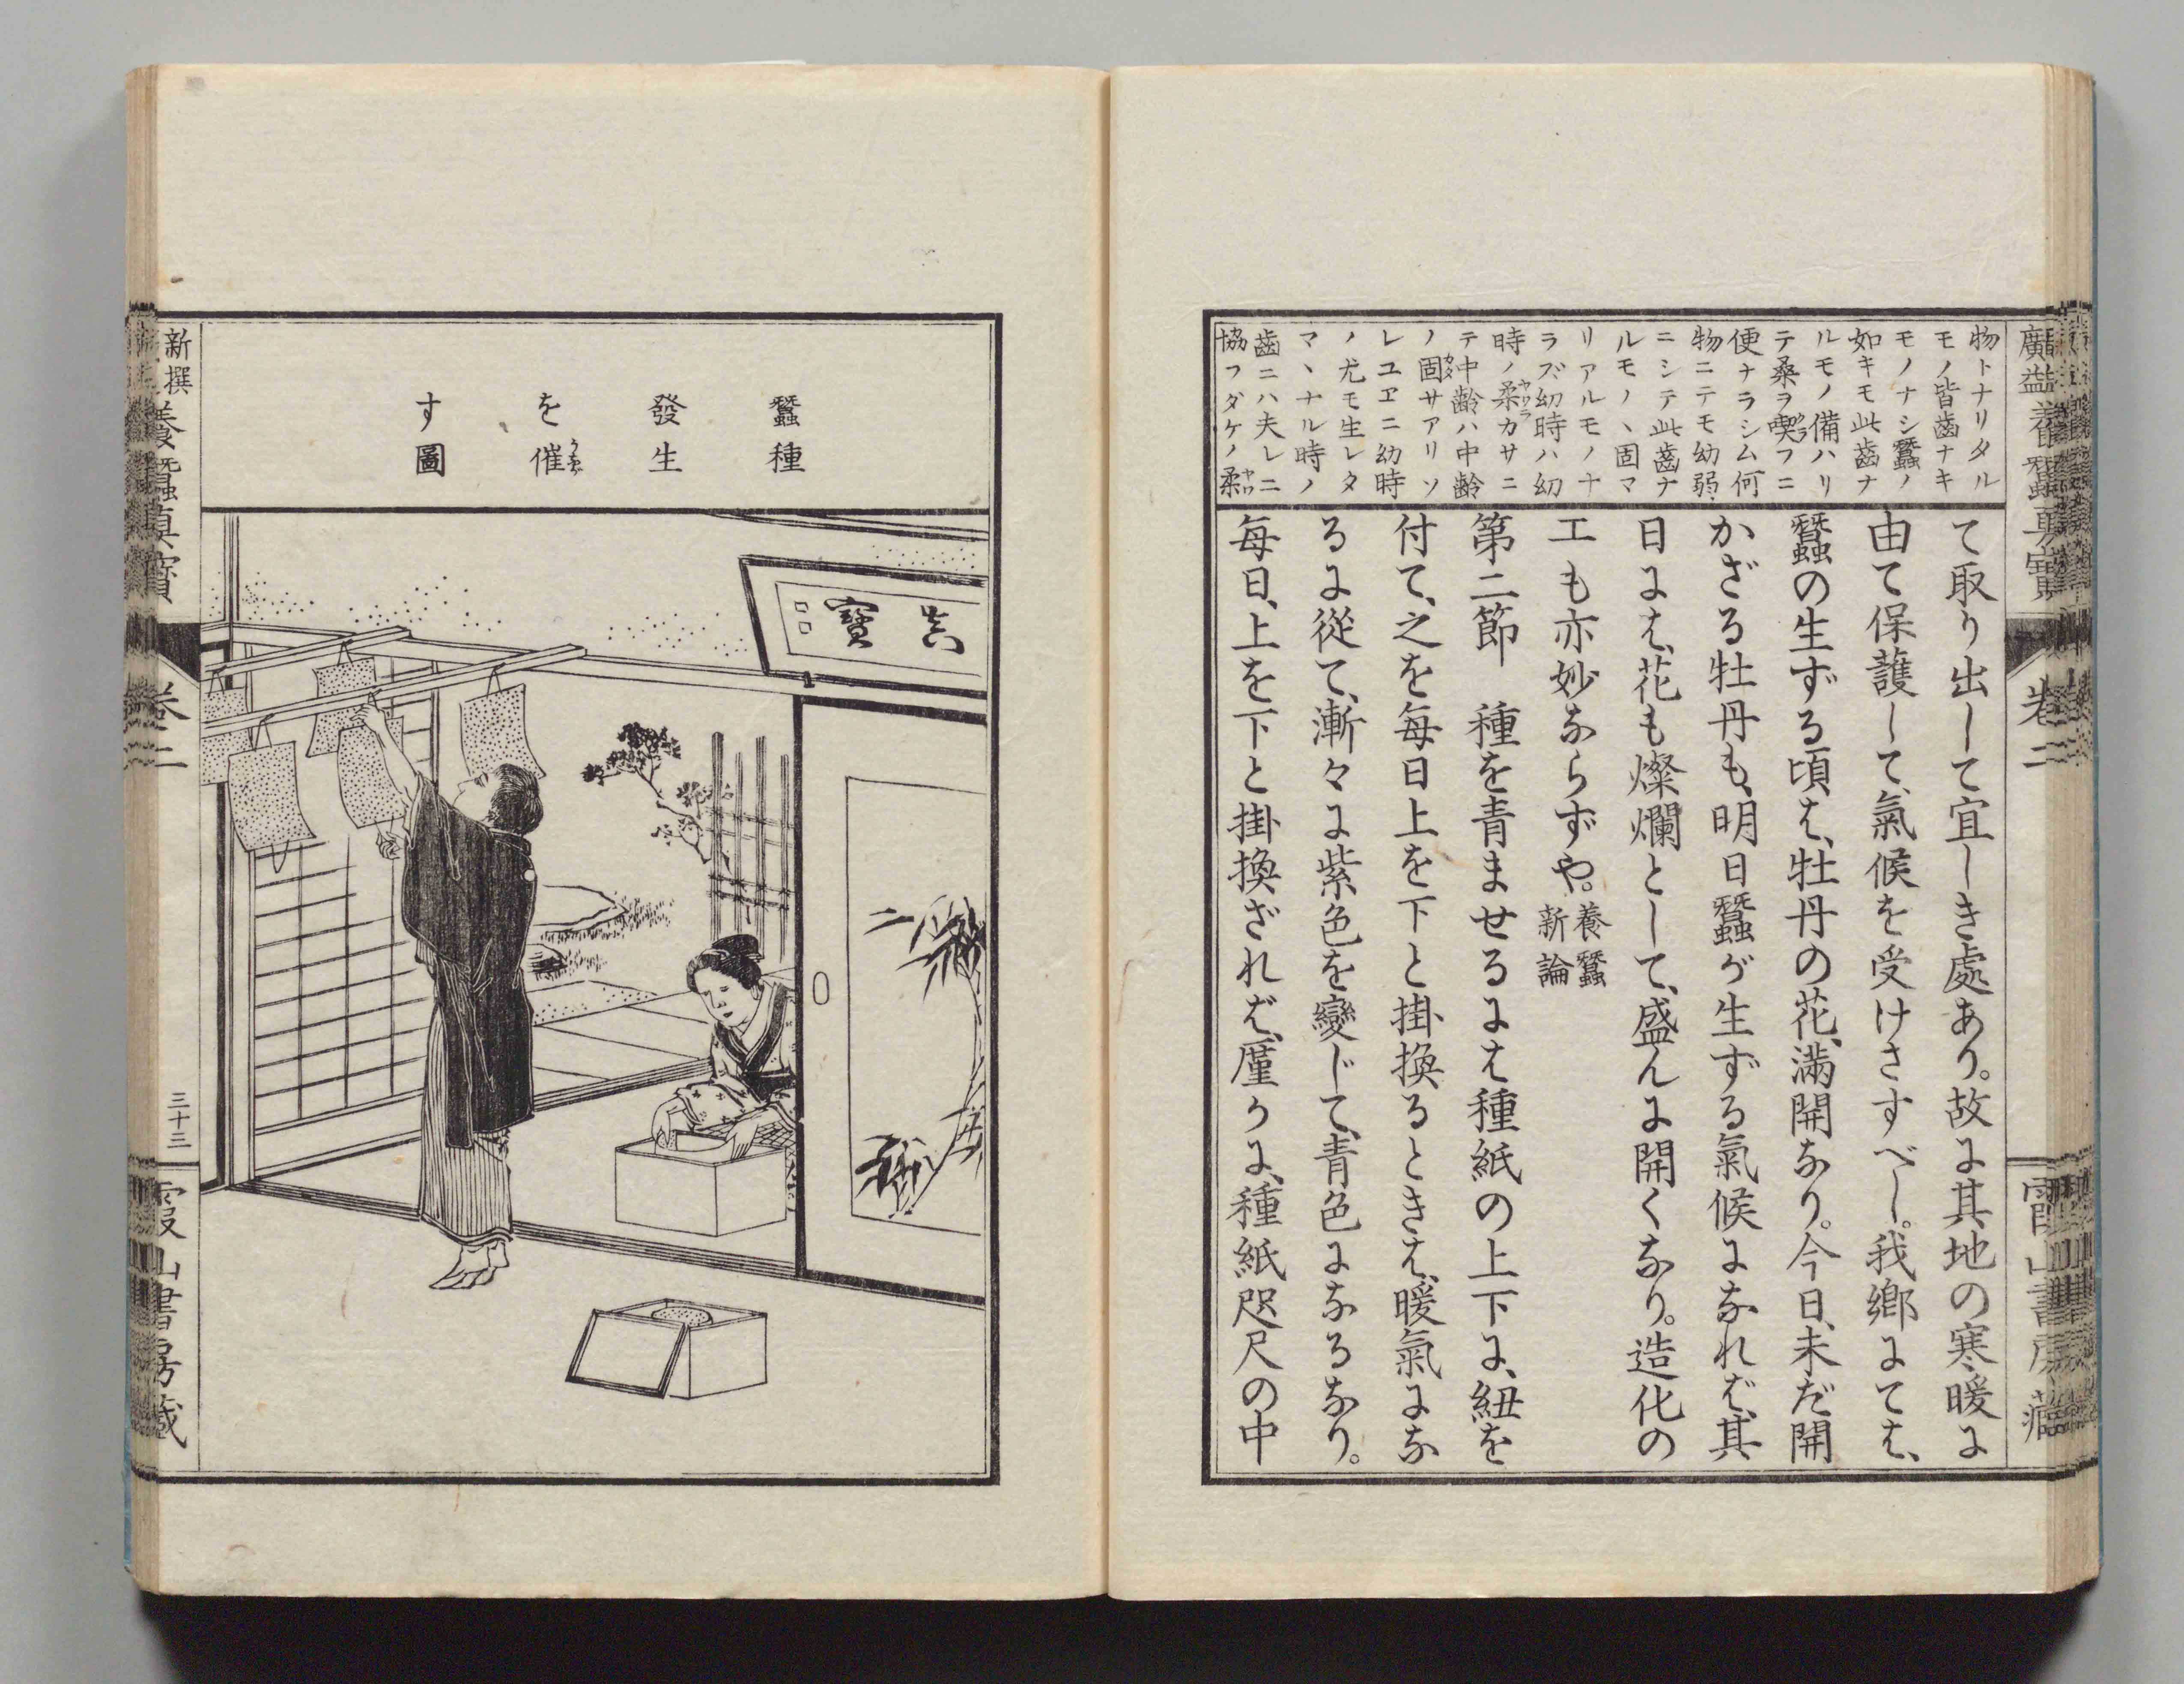 廣益養蠶真寶
卷二
霞山書房藏
物トナリタル
モノ皆齒ナキ
モノナシ蠶ノ
如キモ此齒ナ
ルモノ備ハリ
テ桑ヲ喫フニ
便ナラシム何
物ニテモ幼弱
ニシテ此齒ナ
ルモノヽ固マ
リアルモノナ
ラズ幼時ハ幼
時ノ柔カサニ
テ中齡ハ中齡
ノ固サアリソ
レユヱニ幼時
ノ尤モ生レタ
マヽナル時ノ
齒ニハ夫レニ
協フダケノ柔
て取り出して宜しき處あり。故に其地の寒暖に
由て保護して、氣候を受けさすべし。我鄉にては、
蠶の生ずる頃は、牡丹の花、滿開なり。今日、未だ開
かざる牡丹も、明日蠶が生ずる氣候になれば、其
日には、花も燦爛として、盛んに開くなり。造化の
工も亦妙ならずや。養蠶新論
第二節　種を青ませるには種紙の上下に、紐を
付て、之を每日上を下と掛換るときは、暖氣にな
るに從て、漸々に紫色を變じて、青色になるなり。
每日、上を下と掛換ざれば、厪かに、種紙咫尺の中
蠶種
發生
を催
す圖
真寶
新撰養蠶真寶
卷二
三十三
霞山書房藏